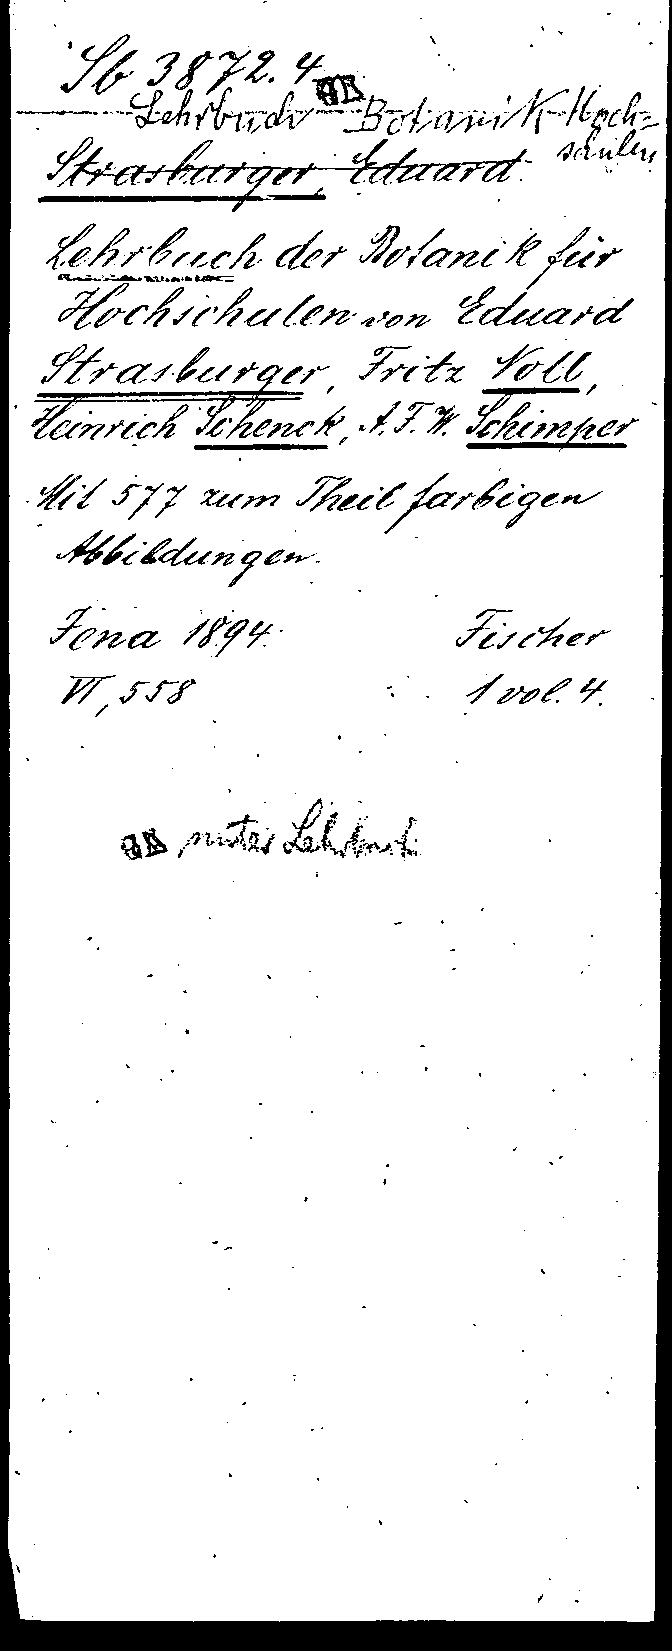 Sb 3872.4
Lehrbuch Botanik Hoch=
schulen
Strasburger, Eduard.
Lehrbuch der Botanik für
Hochschulen von Eduard
Strasburger, Fritz Noll,
Heinrich Schenck, A. F. W. Schimper
Mit 577 zum Theil farbigen
Abbildungen.
Jena 1894. Fischer
VI, 558 1 vol. 4.
unter Lehrbuch